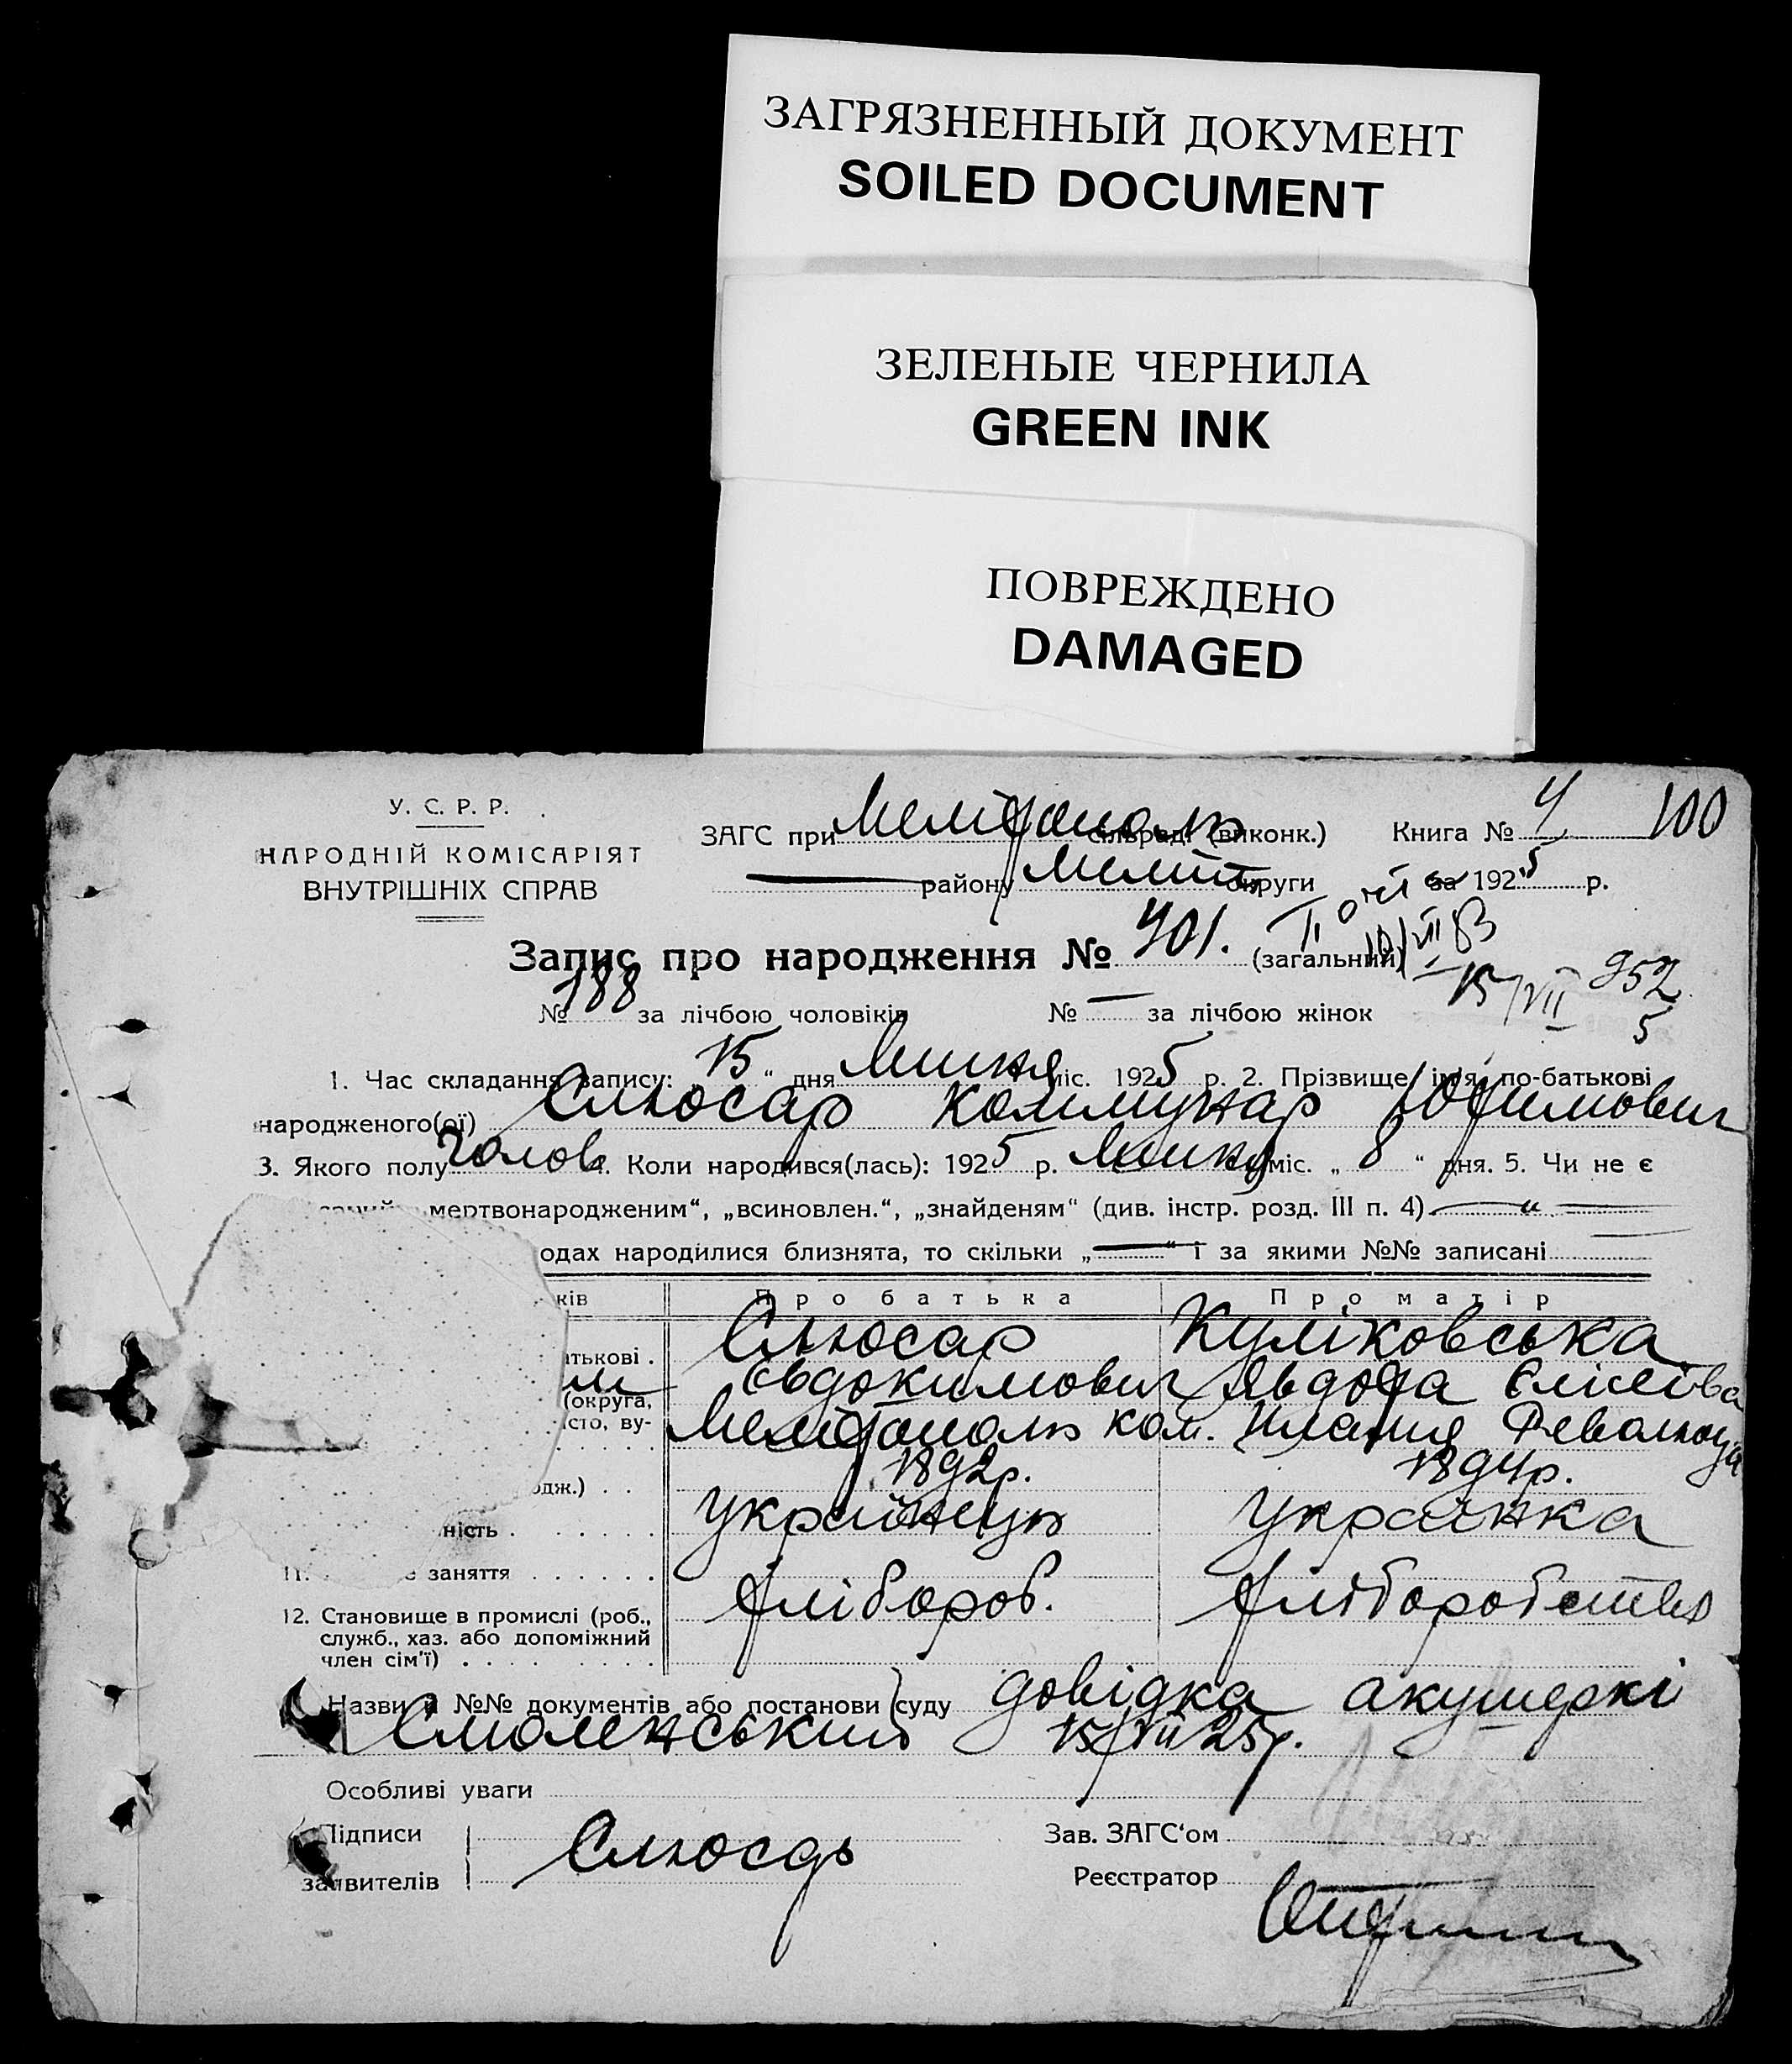 ЗАГРЯЗНЕННЫЙ ДОКУМЕНТ
SOILED DOCUMENT
ЗЕЛЕНЫЕ ЧЕРНИЛА
GREEN INK
ПОВРЕЖДЕНО
DAMAGED
У. С. Р. Р.
НАРОДНІЙ КОМІСАРІЯТ
ВНУТРІШНІХ СПРАВ
ЗАГС при Мелітополь сільраді (виконк.) Книга № 4 100
району Меліт округи за 1925 р.
Запис про народження № 401. (загальний)
15/VII 952
5
№ 188 за лічбою чоловіків № — за лічбою жінок
1. Час складання запису: 15 " дня Липня міс. 1925 р. 2. Прізвище, ім'я, по-батькові
народженого(ої) Слюсар Коммунар Юфимович
3. Якого полу чолов. 4. Коли народився(лась): 1925 р. Липня міс. „ 8 " дня. 5. Чи не є
мертвонародженим", „всиновлен.", „знайденям" (див. інстр. розд. III п. 4) — " —
одах народилися близнята, то скільки „—" і за якими №№ записані
ків Про батька Про матір
Слюсар Куліковська
атькові . Євдокимович Явдоха Єлісеївa
(округа,
істо, ву- Мелітополь ком. Незаможн Революція
1892р. 1894р.
одж.) . .
ність . українець українка
11. е заняття
хлібороб. хліборобство
12. Становище в промислі (роб.,
служб., хаз. або допоміжний
член сім'ї) . . . .
Назви й №№ документів або постанови суду довідка акушеркі
Смоленський 15/VII 25р.
Особливі уваги
Підписи
заявителів
Слюсарь
Зав. ЗАГС'ом
Реєстратор